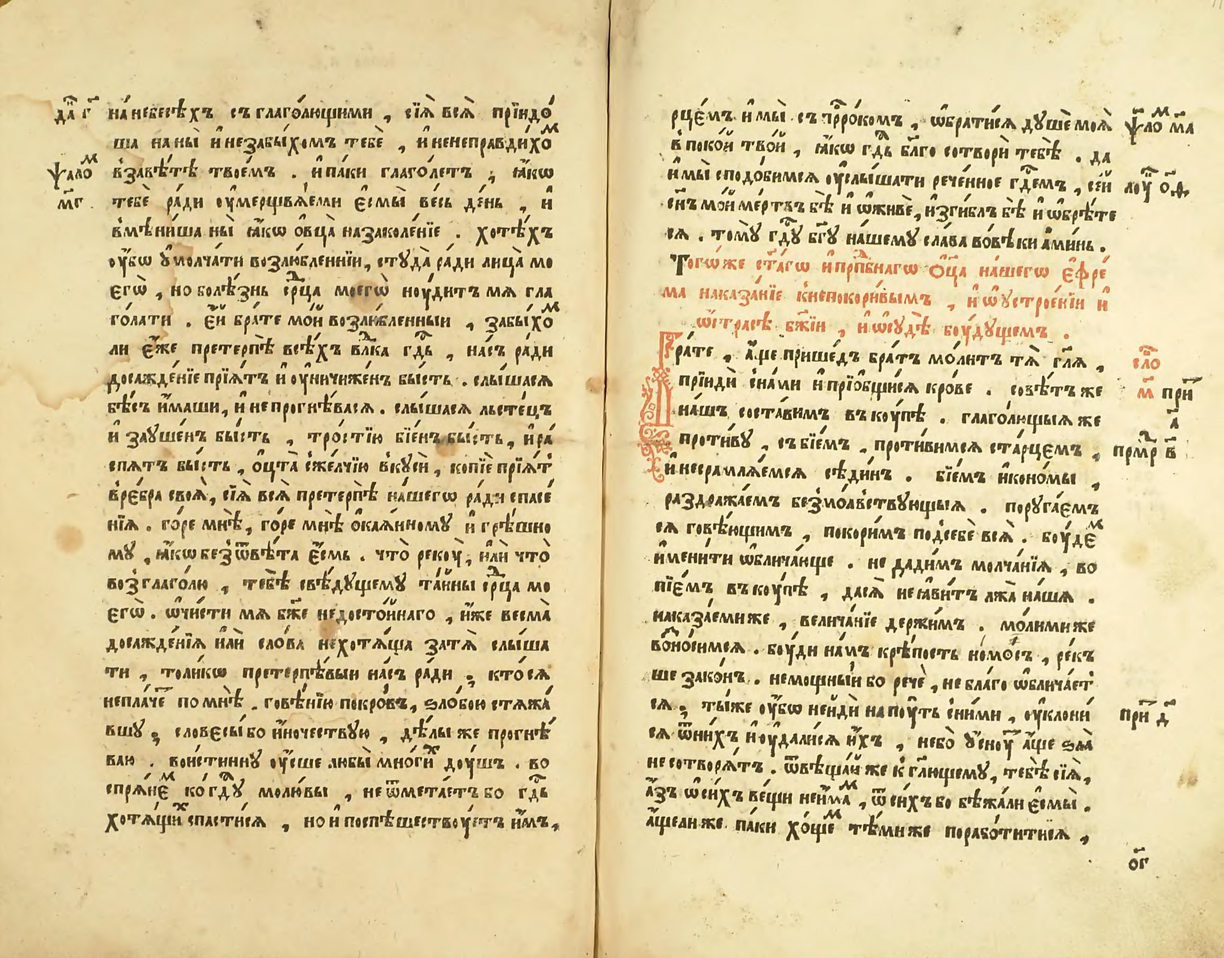 да҃ г҃
на́небесѣ́хъ съглаго́лющими , сїѧ̀ всѧ̀ прїидо́
ша на́ны̀ и҆незабы́хомъ тебѐ , и҆ненепра́вдихо́м
ѱало́м
взавѣ́тѣ твое́мъ . и҆па́ки глаго́летъ , ꙗ҆́кѡ
м҃г .
тебѐ ра́ди ѹ҆мерщвлѧ́еми є҆смы̀ ве́сь де́нь , и҆
вмѣни́ша ны̀ ꙗ҆́кѡ ѻ҆́вца назаколе́нїе . хотѣ́хъ
ѹ҆́бѡ ѹ҆молча́ти возлю́бленнїи , стꙋда̀ ра́ди лица̀ мо
егѡ̀ , но болѣ́знь срⷣца моегѡ̀ нѹ́дитъ мѧ̀ гла
го́лати . є҆́й бра́те мо́й возлю́бленныи , забы́хо́м
ли є҆́же претерпѣ̀ всѣ́хъ влⷣка гдⷭ҇ь , на́съ ра́ди
досажде́нїе прїѧ́тъ и҆ ѹ҆ничиже́нъ бы́сть . слы́шасѧ
бѣ́съ и҆́маши , и҆ непрогнѣ́васѧ . слы́шасѧ льсте́цъ
и҆ заꙋше́нъ бы́сть , тро́стїю бїе́нъ бы́сть , и҆ ра
спѧ́тъ бы́сть , ѻ҆́цта сже́лчїю вкꙋсѝ , копїѐ прїѧ́т
вре́бра своѧ̀ , сїѧ̀ всѧ̀ претерпѣ̀ на́шегѡ ра́ди спасе́
нїѧ . го́ре мнѣ̀ , го́ре мнѣ̀ ѻ҆каѧ́нномꙋ и҆ грѣ́шно
мꙋ , ꙗ҆́кѡ безѿвѣ́та є҆́смь . что̀ рекꙋ̀ , и҆лѝ что̀
возглаго́лю , тебѣ̀ свѣ́дꙋщемꙋ та́йны срⷣца мо
егѡ̀ . ѡ҆чи́сти мѧ̀ бж҃е недосто́йнаго , и҆́же весма̀
досажде́нїѧ и҆лѝ сло́ва нехотѧ́ща затѧ̀ слы́ша
ти , то́ликѡ претерпѣ́выи на́съ ра́ди , кто́сѧ
непла́чет помнѣ̀ . говѣ́нїю покро́въ , ѕло́бою стѧжа́
вшꙋ , словесы́ бо и҆́ночествꙋю , дѣ́лы же прогнѣ́
ваю . вои́стиннꙋ ѹ҆́сше любы̀ мно́гих дꙋ́шъ . во
спрѧ́нем ко гдⷭ҇ꙋ моли́твы , не ѿмета́етъ бо гдⷭ҇ь
хотѧ́щих спасти́сѧ , но и҆ поспѣ́шествꙋетъ и҆́мъ ,
рце́мъ и҆ мы̀ . съ прⷪ҇ро́комъ , ѡ҆брати́сѧ дꙋшѐ моѧ̀
ѱало́м м҃а
в поко́й тво́й , ꙗ҆́кѡ гдⷭ҇ь бл҃го сотворѝ тебѣ̀ . да
и҆ мы̀ сподо́бимсѧ ѹ҆слы́шати рече́нное гдⷭ҇емъ , се́й
лꙋ҃ ѻ҃ѳ.
сн҃ъ мо́й ме́ртвъ бѣ̀ и҆ ѡ҆живѐ , и҆зги́блъ бѣ̀ и҆ ѡ҆брѣ́те
сѧ . томꙋ̀ гдⷭ҇ꙋ бг҃ꙋ на́шемꙋ сла́ва вовѣ́ки а҆ми́нь .
Тогѡ́же ст҃агѡ и҆прпⷣбнагѡ Ѻ҆ц҃а на́шегѡ є҆фре́
ма наказа́нїе кнепокори́вымъ , и҆ ѡ҆ ꙋстрое́нїи и҆
ѡ҆стра́сѣ бж҃їи , и҆ ѡ҆сꙋдѣ̀ бꙋ́дꙋщемъ .
сло҃
м҃
Бра́те , а҆́ще прише́дъ бра́тъ мо́литъ тѧ̀ гл҃ѧ ,
прїидѝ сна́ми и҆ прїѡбщи́сѧ кро́ве . совѣ́тъ же
при҃ а҃
на́шъ соста́вимъ вкꙋ́пѣ . глаго́лющыѧ же
проти́вꙋ , събїе́мъ , проти́вимсѧ ста́рцемъ ,
прмр҃ в҃
и҆ несрамлѧ́емсѧ сѣди́нъ . бїе́мъ и҆кономы̀ ,
раздража́емъ безмо́лвствꙋющыѧ . порꙋга́емъ
сѧ говѣ́ющимъ , покори́мъ подсебѐ всѧ̀ . бꙋ́дем
и҆мени́ти ѡ҆блича́юще . не дади́мъ молча́нїѧ , во
пїе́мъ вкꙋ́пѣ , да́сѧ неꙗ҆ви́тъ лжа̀ на́ша .
наказа́еми же , велича́нїе держи́мъ . моли́ми же
возно́симсѧ . бꙋ́ди на́мъ крѣ́пость но́мосъ , ре́къ
ше зако́нъ . немощны́й бо речѐ , не бла́го ѡ҆блича́етъ
сѧ , ты́же ѹ҆́бѡ нейдѝ на пꙋ́ть сни́ми , ѹ҆клонѝ
при҃ д҃
сѧ ѿни́хъ и҆ ѹ҆дали́сѧ и҆́хъ , небо̀ ѹ҆́снꙋт а҆́ще ѕла̀
не сотворѧ́тъ . ѿвѣща́й же к гл҃ющемꙋ , тебѣ̀ сїѧ̀ ,
а҆́зъ ѡ҆си́хъ ве́щи неи҆́мам , ѿ си́хъ бо бѣжа́ли є҆смы̀ .
а҆́щели же па́ки хо́щем тѣ́миже порабо́титисѧ ,
о҃г